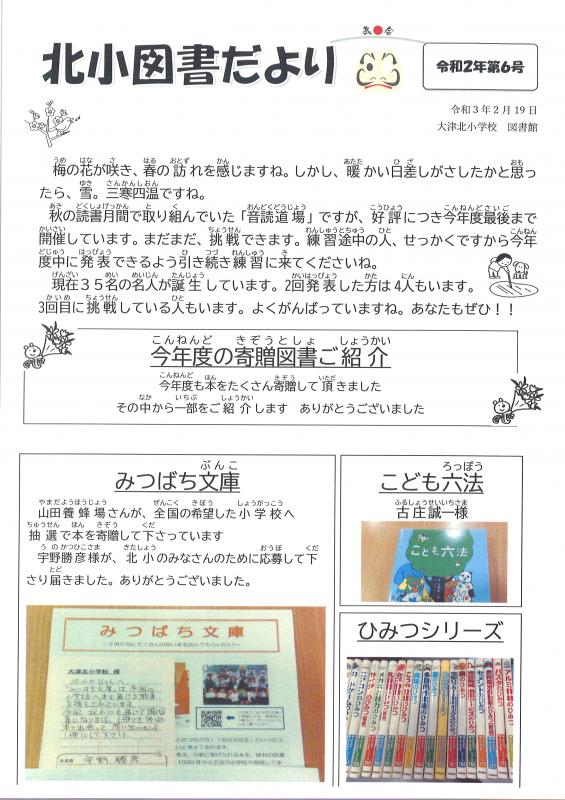 北小図書だより
合
令和2年第6号
令和3年2月19日
大津北小学校 図書館
梅の花が咲き、春の訪れを感じますね。しかし、暖かい日差しがさしたかと思っ
たら、雪。三寒四温ですね。
秋の読書月間で取り組んでいた「音読道場」ですが、好評につき今年度最後まで
開催しています。まだまだ、挑戦できます。練習途中の人、せっかくですから今年
度中に発表できるよう引き続き練習に来てくださいね。
現在35名の名人が誕生しています。2回発表した方は4人もいます。
3回目に挑戦している人もいます。よくがんばっていますね。あなたもぜひ！！
今年度の寄贈図書ご紹介
今年度も本をたくさん寄贈して頂きました
その中から一部をご紹介します ありがとうございました
みつばち文庫
山田養蜂場さんが、全国の希望した小学校へ
抽選で本を寄贈して下さっています
宇野勝彦様が、北小のみなさんのために応募して下
さり届きました。ありがとうございました。
みつばち文庫
～子供たちにたくさんの良い本を読んでもらいたい～
大津北小学校 様
こども六法
古庄誠一様
こども六法
ひみつシリーズ